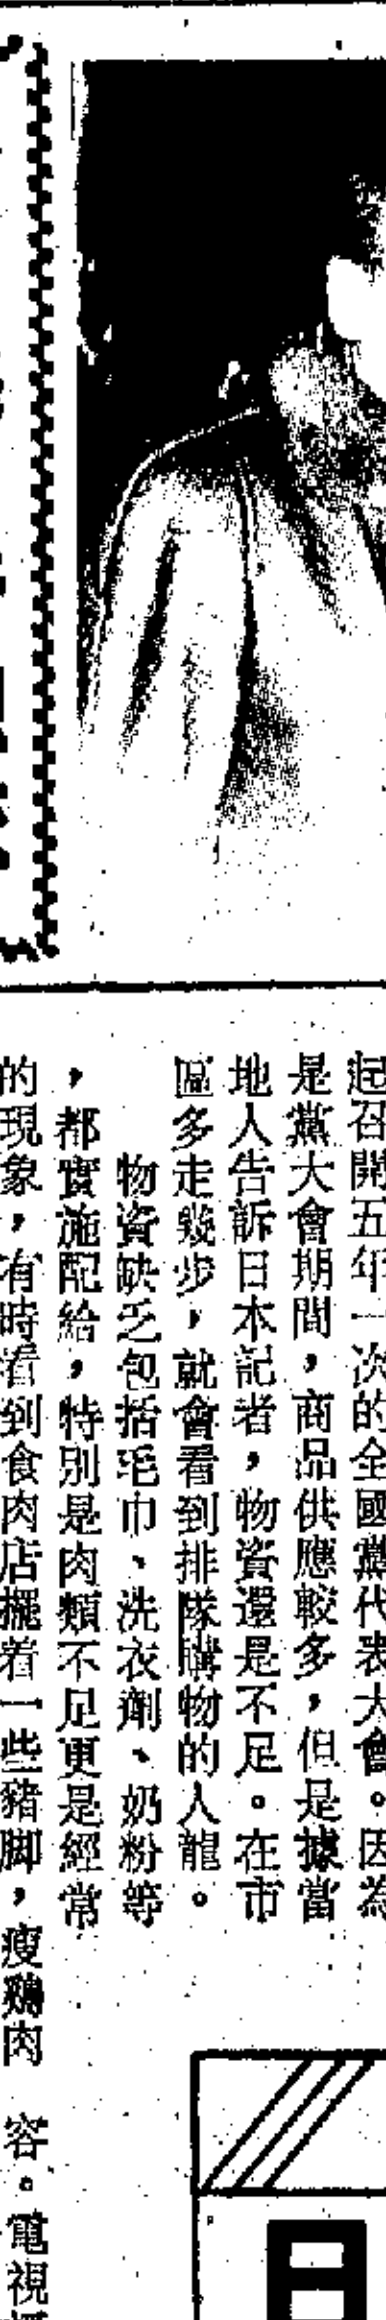 起召開五年一次的全國黨代表大會。因為
是黨大會期間，商品供應較多，但是據當
地人告訴日本記者，物資還是不足。在市
區多走幾步，就會看到排隊購物的人龍。
物資缺乏包括毛巾、洗衣劑、奶粉等
，都實施配給，特別是肉類不足更是經常
的現象，有時看到食肉店擺着一些豬脚，瘦鷄肉
容。電視
日